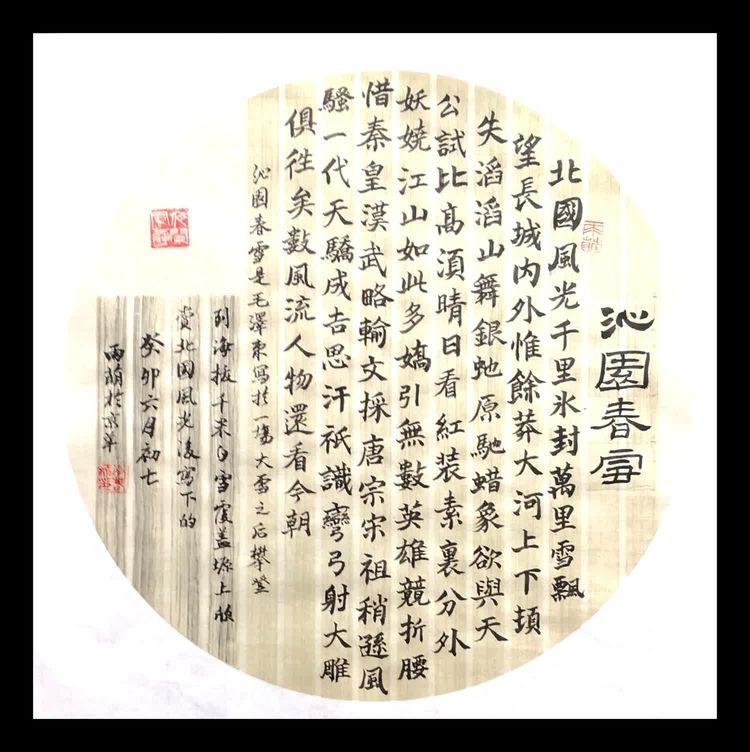 沁園春雪
北國風光千里氷封萬里雪飄
望長城内外惟餘莽大河上下頓
失滔滔山舞銀虵原馳蜡象欲與天
公試比高須晴日看紅装素裹分外
妖嬈江山如此多嬌引無數英雄競折腰
惜秦皇漢武略輸文採唐宗宋祖稍遜風
騷一代天驕成吉思汗祇識彎弓射大雕
俱徃矣數風流人物還看今朝
沁园春雪是毛澤東寫於一場大雪之后攀登
到海拔千米白雪覆盖塬上欣
赏北国風光後寫下的
癸卯六月初七
雨萌於京